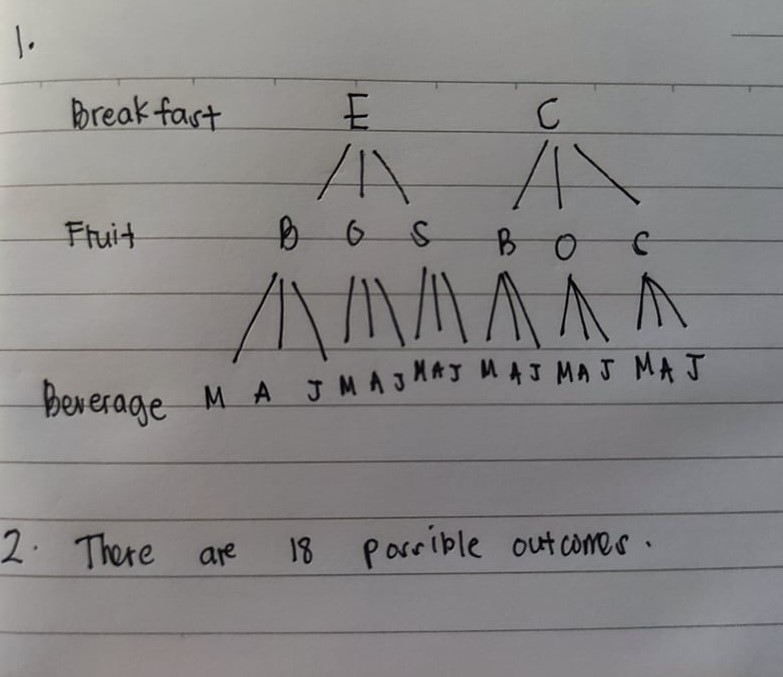 1.
Breakfast E C
Fruit B O S B O C
Beverage M A J M A J M A J M A J M A J M A J
2. There are 18 possible outcomes.